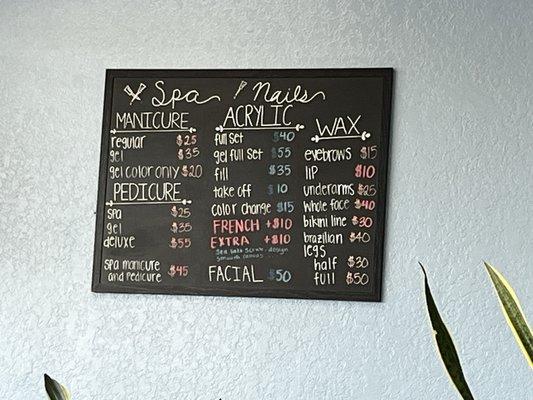 Spa Nails
MANICURE
regular $25
gel $35
gel color only $20
PEDICURE
spa $25
gel $35
deluxe $55
spa manicure
and pedicure $45
ACRYLIC
full set $40
gel full set $55
fill $35
take off $10
color change $15
FRENCH +$10
EXTRA +$10
sea salt scrub, design
FACIAL $50
WAX
eyebrows $15
lip $10
underarms $25
whole face $40
bikini line $30
brazilian $40
legs
half $30
full $50